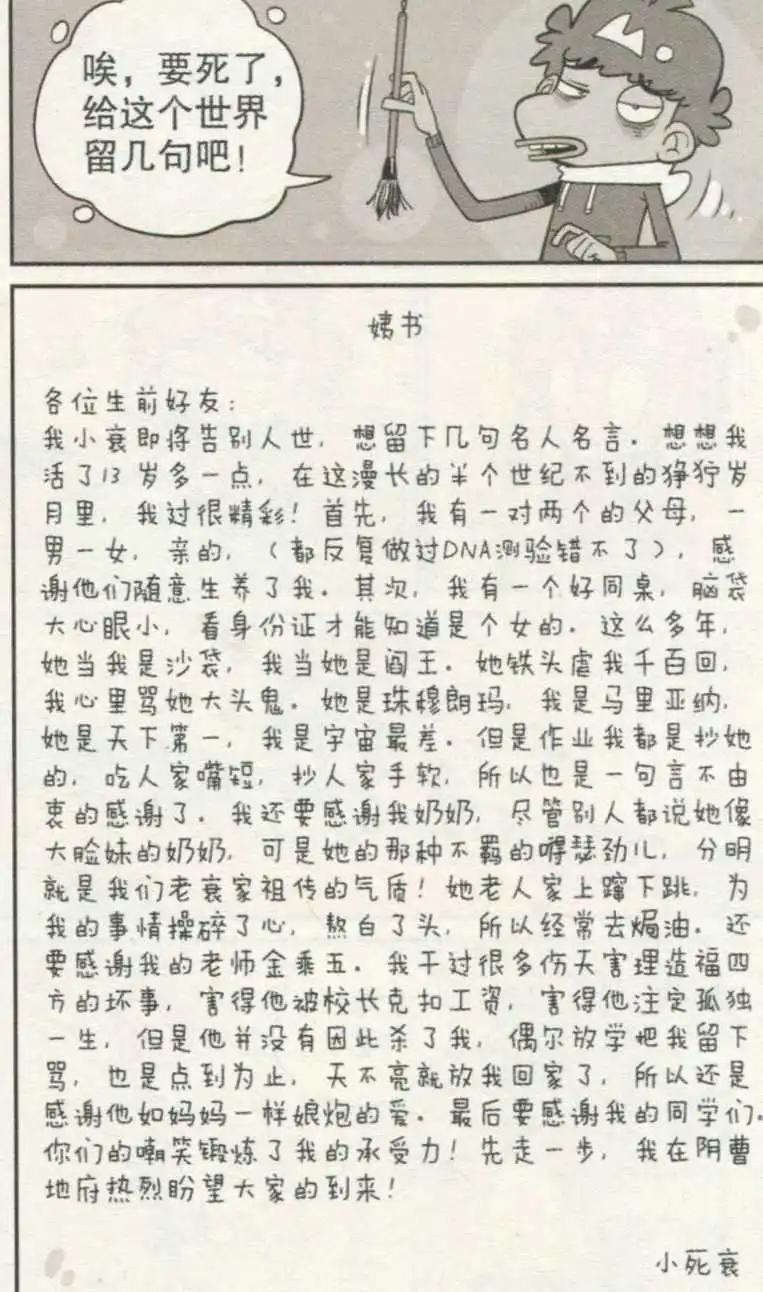 唉，要死了，
给这个世界
留几句吧！
姨书
各位生前好友：
我小衰即将告别人世，想留下几句名人名言．想想我
活了13岁多一点，在这漫长的半个世纪不到的狰狞岁
月里，我过很精彩！首先，我有一对两个的父母，一
男一女，亲的，（都反复做过DNA测验错不了），感
谢他们随意生养了我．其次，我有一个好同桌，脑袋
大心眼小，看身份证才能知道是个女的．这么多年，
她当我是沙袋，我当她是阎王．她铁头虐我千百回，
我心里骂她大头鬼．她是珠穆朗玛，我是马里亚纳，
她是天下第一，我是宇宙最差．但是作业我都是抄她
的，吃人家嘴短，抄人家手软，所以也是一句言不由
衷的感谢了．我还要感谢我奶奶，尽管别人都说她像
大脸妹的奶奶，可是她的那种不羁的嘚瑟劲儿，分明
就是我们老衰家祖传的气质！她老人家上蹿下跳，为
我的事情操碎了心，熬白了头，所以经常去焗油．还
要感谢我的老师金乘五．我干过很多伤天害理造福四
方的坏事，害得他被校长克扣工资，害得他注定孤独
一生，但是他并没有因此杀了我，偶尔放学把我留下
骂，也是点到为止，天不亮就放我回家了，所以还是
感谢他如妈妈一样娘炮的爱．最后要感谢我的同学们．
你们的嘲笑锻炼了我的承受力！先走一步，我在阴曹
地府热烈盼望大家的到来！
小死衰